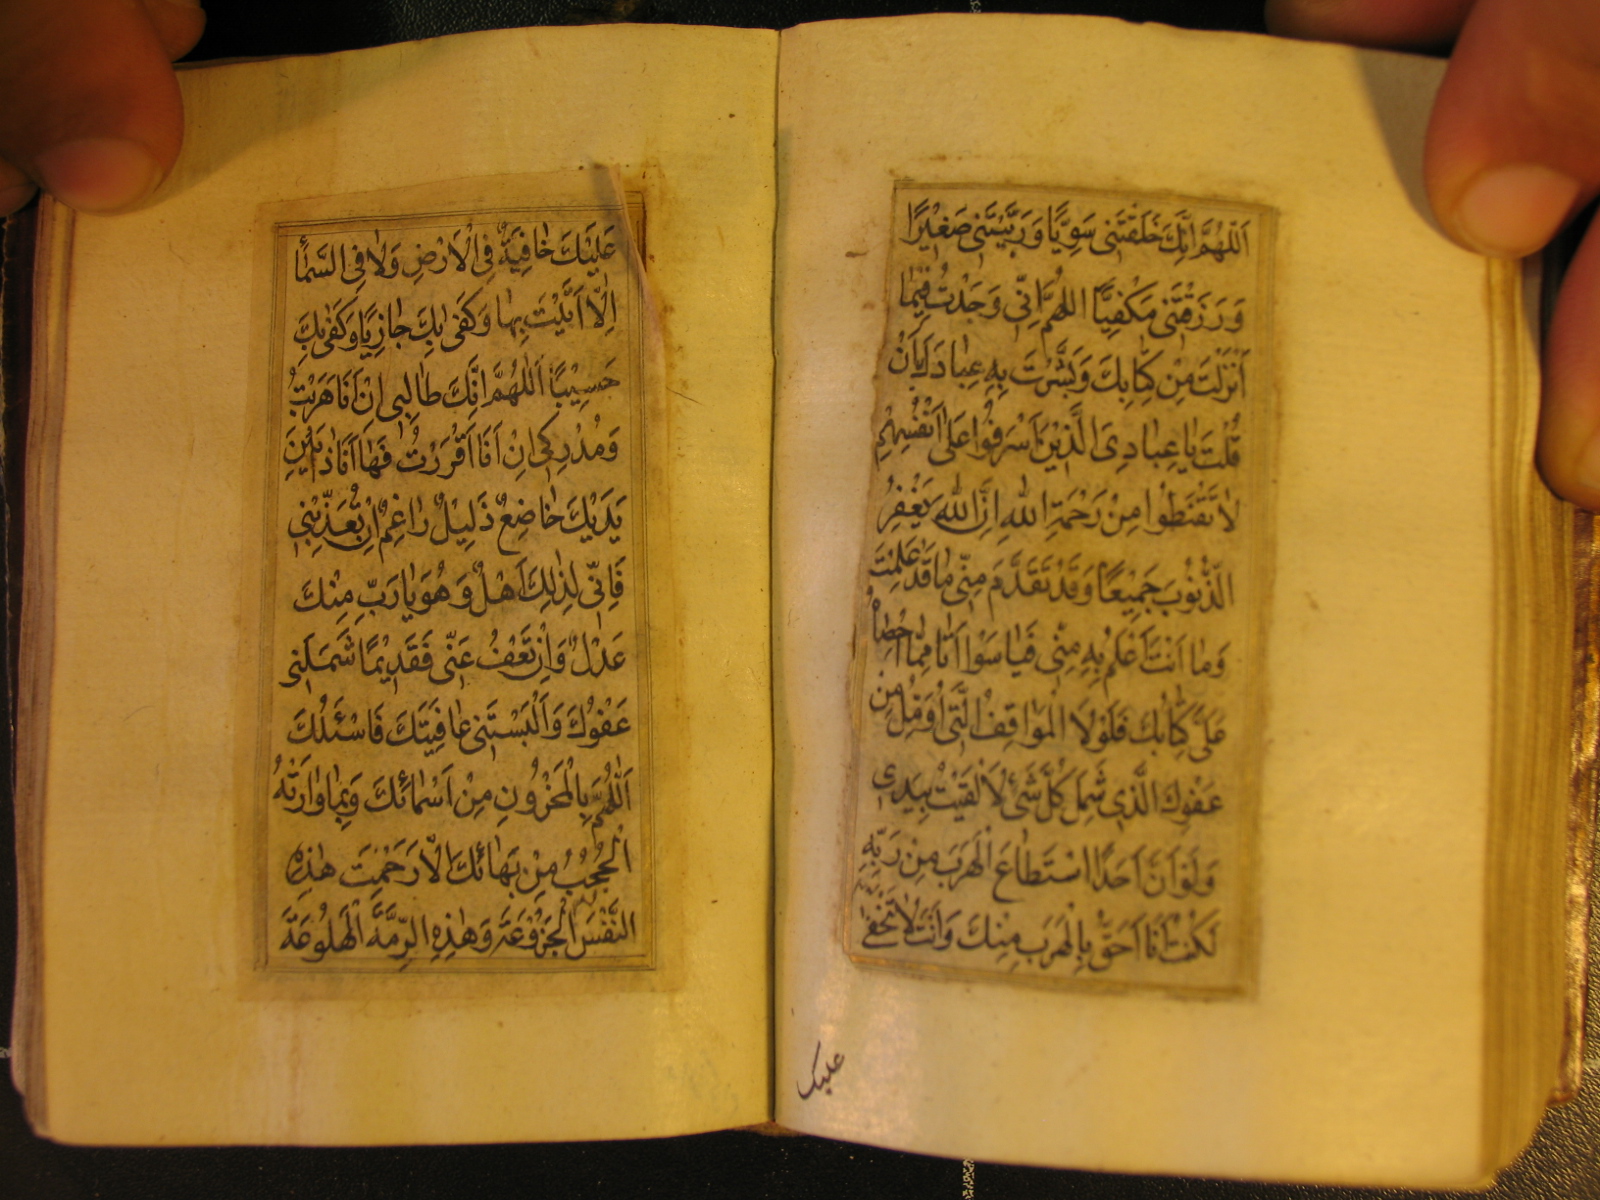 اَللّٰهُمَّ اِنَّكَ خَلَقْتَنى سَوِيًّا وَرَبَّيْتَنى صَغيْرًا
وَرَزَقْتَنى مَكْفِيًّا اللّهُمَّ اِنّى وَجَدْتُ فِيْمٰا
اَنْزَلْتَ مِنْ كِتٰابِكَ وَبَشَّرْتَ بِهِ عِبٰادَكَ اَنْ
قُلْتَ يٰا عِبٰادِىَ الَّذيْنَ اَسْرَفُوا عَلىٰ اَنْفُسِهِمْ
لاٰ تَقْنَطُوا مِنْ رَحْمَةِ اللهِ اِنَّ اللهَ يَغْفِرُ
الذُّنُوبَ جَمِيْعًا وَقَدْ تَقَدَّمَ مِنّى مٰا قَدْ عَلِمْتَ
وَمٰا اَنْتَ اَعْلَمُ بِهِ مِنّى فَيٰا سَوْاَتٰا مِمّٰا اَحْصٰاهُ
عَلَىَّ كِتٰابُكَ فَلَوْلاَ الْمَوٰاقِفُ الَّتى اُوَمِّلُ مِنْ
عَفْوِكَ الَّذى شَمِلَ كُلَّ شَىْءٍ لَاَلْقَيْتُ بِيَدى
وَلَوْ اَنَّ اَحَدًا اسْتَطٰاعَ الْهَرَبَ مِنْ رَبِّهِ
لَكُنْتُ اَنَا اَحَقَّ بِالْهَرَبِ مِنْكَ وَاَنْتَ لاٰ تَخْفىٰ
عليك
عَلَيْكَ خٰافِيَةٌ فِى الْاَرْضِ وَلاٰ فِى السَّمٰاءِ
اِلاّٰ اَتَيْتَ بِهٰا وَكَفىٰ بِكَ جٰازِيًا وَكَفىٰ بِكَ
حَسِيْبًا اَللّٰهُمَّ اِنَّكَ طٰالِبى اِنْ اَنَا هَرَبْتُ
وَمُدْرِكى اِنْ اَنَا اَقْرَرْتُ فَهٰا اَنَاذٰا بَيْنَ
يَدَيْكَ خٰاضِعٌ ذَلِيْلٌ رٰاغِمٌ اِنْ تُعَذِّبْنى
فَاِنّى لِذٰلِكَ اَهْلٌ وَهُوَ يٰا رَبِّ مِنْكَ
عَدْلٌ وَاِنْ تَعْفُ عَنّى فَقَدِيْمًا شَمَلَنى
عَفْوُكَ وَاَلْبَسْتَنى عٰافِيَتَكَ فَاَسْئَلُكَ
اَللّٰهُمَّ بِالْمَخْزُونِ مِنْ اَسْمٰائِكَ وَبِمٰا وٰارَتْهُ
الْحُجُبُ مِنْ بَهٰائِكَ اِلاّٰ رَحِمْتَ هٰذِهِ
النَّفْسَ الْجَزُوْعَةَ وَهٰذِهِ الرِّمَّةَ الْهَلُوعَةَ